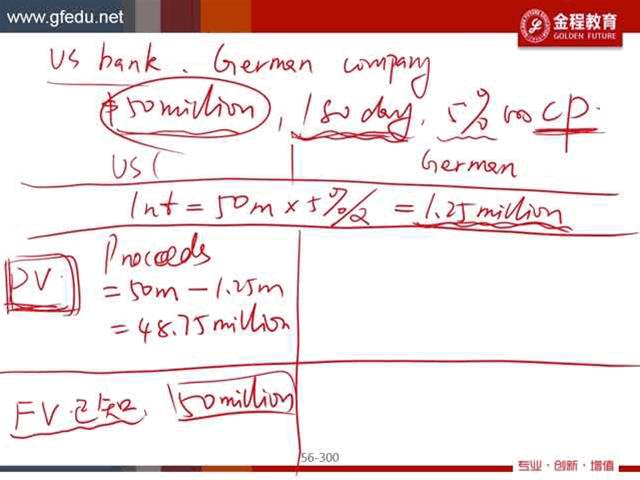 www.gfedu.net
金程教育
GOLDEN FUTURE
US bank. German company
$50 million, 180 day, 5% CP.
US German
Int = 50m × 5%/2 = 1.25 million
PV Proceeds
= 50m - 1.25m
= 48.75 million
FV 已知 50 million
56-300
专业·创新·增值